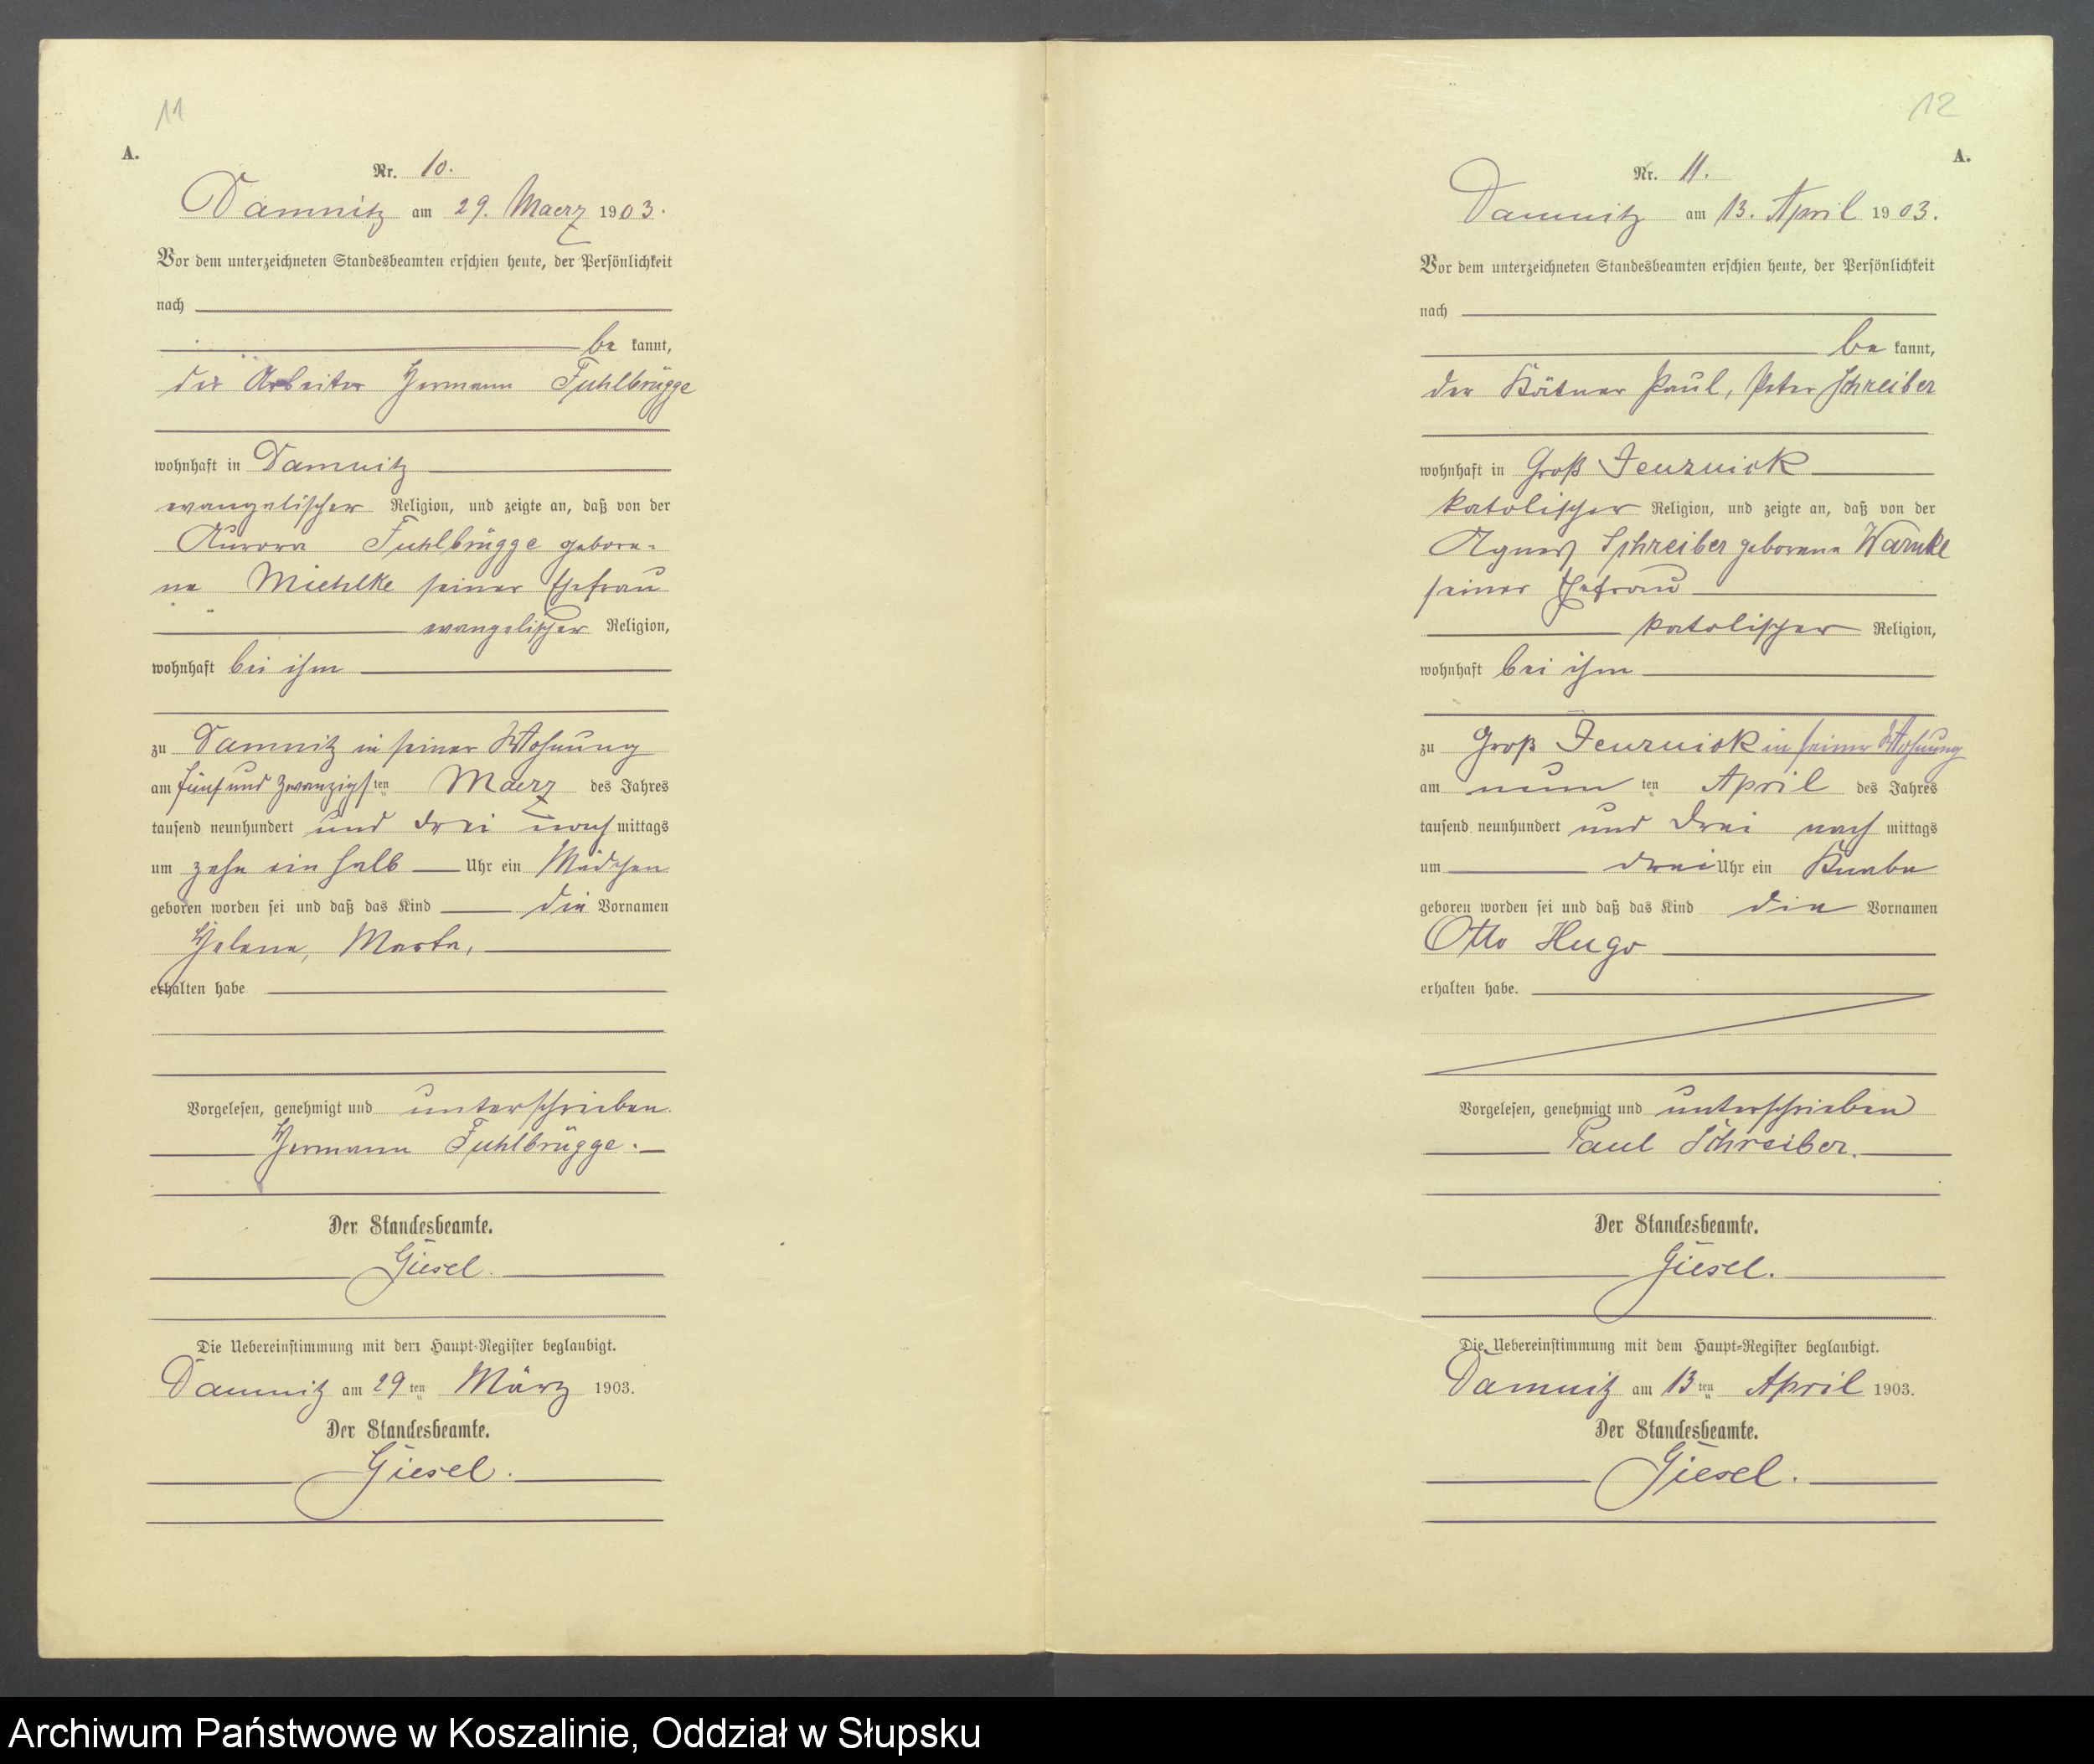 11
A.
Nr. 10.
Damnitz am 29. Maerz 1903.
Vor dem unterzeichneten Standesbeamten erschien heute, der Persönlichkeit
nach
be kannt,
der Arbeiter Hermann Fuhlbrügge
wohnhaft in Damnitz
evangelischer Religion, und zeigte an, daß von der
Aurora Fuhlbrügge gebore-
ne Miehlke seiner Ehefrau
evangelischer Religion,
wohnhaft bei ihm
zu Damnitz in seiner Wohnung
am fünf und zwanzigsten Maerz des Jahres
tausend neunhundert und drei nachmittags
um zehn ein halb Uhr ein Mädchen
geboren worden sei und daß das Kind die Vornamen
Helene, Marta,
erhalten habe
Vorgelesen, genehmigt und unterschrieben.
Hermann Fuhlbrügge.
Der Standesbeamte.
Giesel.
Die Uebereinstimmung mit dem Haupt-Register beglaubigt.
Damnitz am 29ten März 1903.
Der Standesbeamte.
Giesel.
12
A.
Nr. 11.
Damnitz am 13. April 1903.
Vor dem unterzeichneten Standesbeamten erschien heute, der Persönlichkeit
nach
be kannt,
der Kätner Paul, Peter Schreiber
wohnhaft in Groß Jenznick
katolischer Religion, und zeigte an, daß von der
Agnes Schreiber geborene Warnke
seiner Ehefrau
katolischer Religion,
wohnhaft bei ihm
zu Groß Jenznick in seiner Wohnung
am neunten April des Jahres
tausend neunhundert und drei nachmittags
um drei Uhr ein Knabe
geboren worden sei und daß das Kind die Vornamen
Otto Hugo
erhalten habe.
Vorgelesen, genehmigt und unterschrieben
Paul Schreiber.
Der Standesbeamte.
Giesel.
Die Uebereinstimmung mit dem Haupt-Register beglaubigt.
Damnitz am 13ten April 1903.
Der Standesbeamte.
Giesel.
Archiwum Państwowe w Koszalinie, Oddział w Słupsku